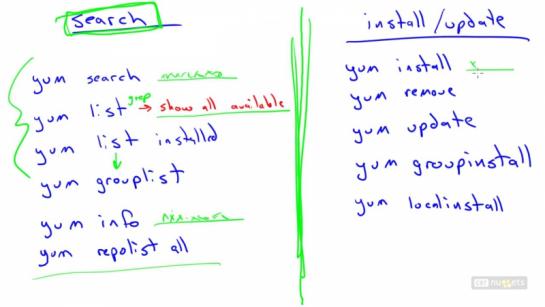 search
yum search
yum list grep → show all available
yum list installed
yum grouplist
yum info
yum repolist all
install/update
yum install x
yum remove
yum update
yum groupinstall
yum localinstall
cbt nuggets